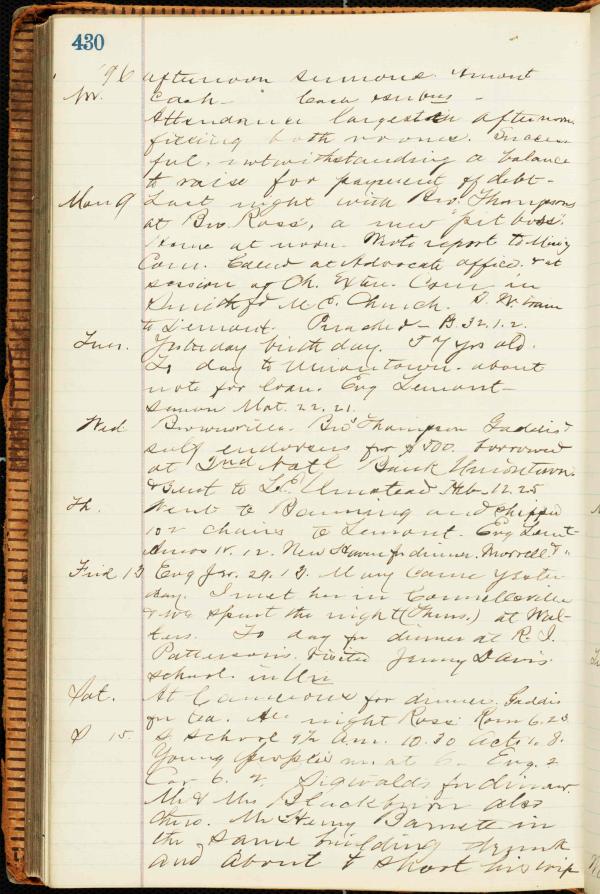 430
'96 afternoon sermons. Amont
Nov. Cash -
Attendance largest in afternoon
filling both rooms. Success-
ful, notwithstanding a balance
to raise for payment of debt-
Mon 9 Last night with Bro. Thompsons
at Bro. Ross', a new "pit boss".
Home at noon. Mote report to Miny
Com. Called at Advocate office. & at
session of Ch. Exten. Com. in
Smithfd M. E. Church. S. W. train
to Lemont. Preached - 32. 1. 2.
Tues. Yesterday birthday. 57 yrs old.
To day to Uniontown. about
note for loan. Evg Lemont-
sermon Mat. 22. 21.
Wed Brownsville. Bros Thompson Gaddis &
self endorsers for $500. borrowed
at 2nd Natl Bank Uniontown.
& sent to L. E. Umstead Heb. 12. 25
Th. Went to Banning and shipped
102 chairs to Lemont. Evg Lemt-
Amos 18. 12. New Haven for dinner. Morrell &
Frid 13 Evg Jer. 29. 13. Mary came yester-
day. I met her in Connellsville
& we spent the night (Thurs.) at Wal-
ters. To day for dinner at R. I.
Pattersons. Visited Jenny Davis
school in
Sat. At Camerons for dinner. Gaddis
for tea. All night Ross'. Rom 6. 23
S 15. S School 9½ am. 10.30 Acts 1. 8.
Young peoples m. at 6. Evg. 2
Cor 6. 2. Sigwalds for dinner.
Mr & Mrs Blackburn also
there. Mr Henry Barnett in
the same building drunk
and about to shoot his wife